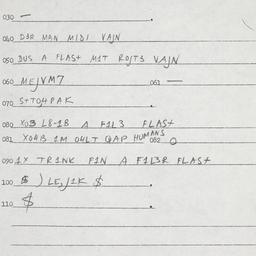 030 —
040 D3R MAN MIDI VAJN
050 DUS A FLAS+ M1T ROJT3 VAJN
060 MEJVM7 061 —
070 S+TO4PAK
080 X03 L8-18 A F1L3 FLAS+
081 X04B 1M 04LT QAP HUMANS 082 O
090 1X TR1NK F1N A F1L3R FLAS+
100 $ ) LE,J1K $
110 $